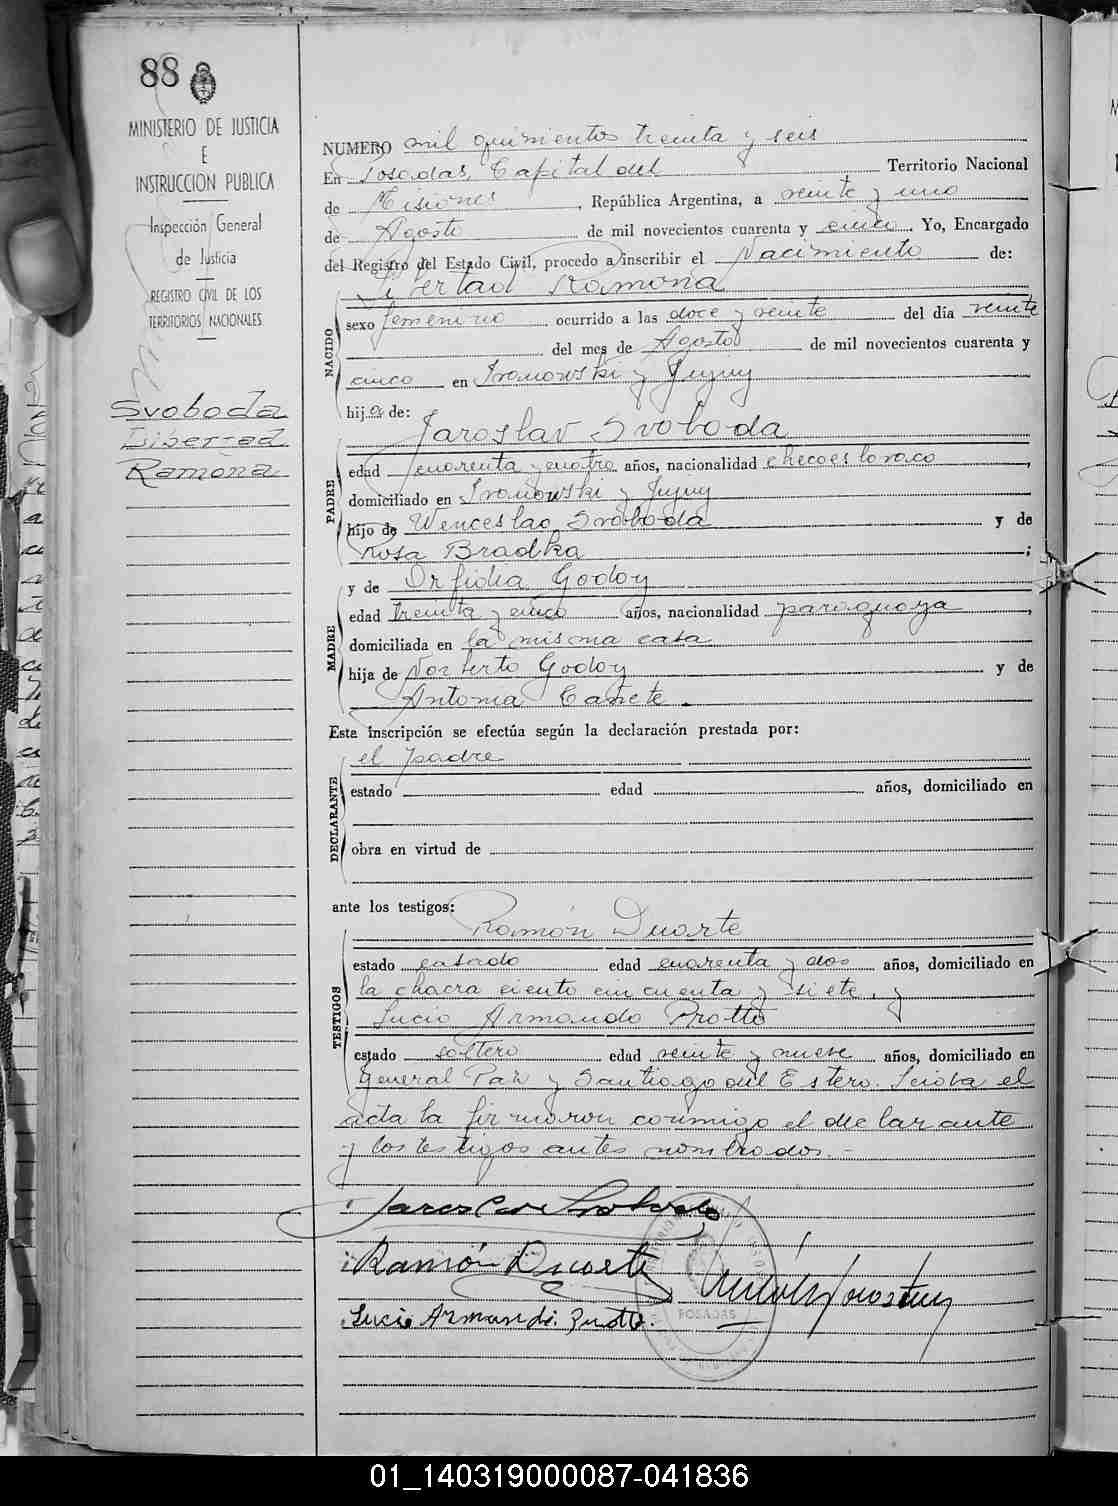 88
MINISTERIO DE JUSTICIA
E
INSTRUCCION PUBLICA
Inspección General
de Justicia
REGISTRO CIVIL DE LOS
TERRITORIOS NACIONALES
Svoboda
Libertad
Ramona
NUMERO mil quinientos treinta y seis
En Posadas, Capital del Territorio Nacional
de Misiones, República Argentina, a veinte y uno
de Agosto de mil novecientos cuarenta y cinco. Yo, Encargado
del Registro del Estado Civil, procedo a inscribir el Nacimiento de:
Libertad Ramona
NACIDO
sexo femenino ocurrido a las doce y veinte del día veinte
del mes de Agosto de mil novecientos cuarenta y
cinco en Ivanowski y Jujuy
hija de:
Jaroslav Svoboda
PADRE
edad cuarenta y cuatro años, nacionalidad checoeslovaco,
domiciliado en Ivanowski y Jujuy
hijo de Wenceslao Svoboda y de
Rosa Bradka;
y de Orfidia Godoy
MADRE
edad treinta y cinco años, nacionalidad paraguaya,
domiciliada en la misma casa
hija de Norberto Godoy y de
Antonia Cañete.
Esta inscripción se efectúa según la declaración prestada por:
el padre
DECLARANTE
estado edad años, domiciliado en
obra en virtud de
ante los testigos:
Ramón Duarte
TESTIGOS
estado casado edad cuarenta y dos años, domiciliado en
la chacra ciento cincuenta y siete, y
Lucio Armando Protto
estado soltero edad veinte y nueve años, domiciliado en
General Paz y Santiago del Estero. Leída el
acta la firmaron conmigo el declarante
y los testigos antes nombrados.-
Jaroslav Svoboda
Ramón Duarte
Lucio Armando
POSADAS
01_140319000087-041836